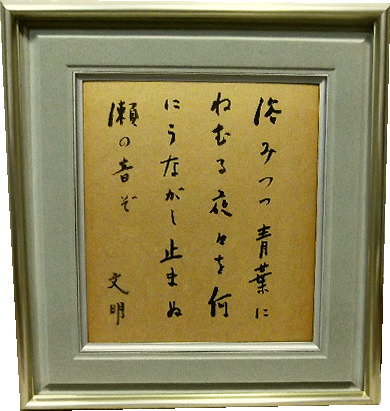 浴みつつ青葉に
ねむる夜々を何
にうながし止まぬ
瀬の音ぞ 文明